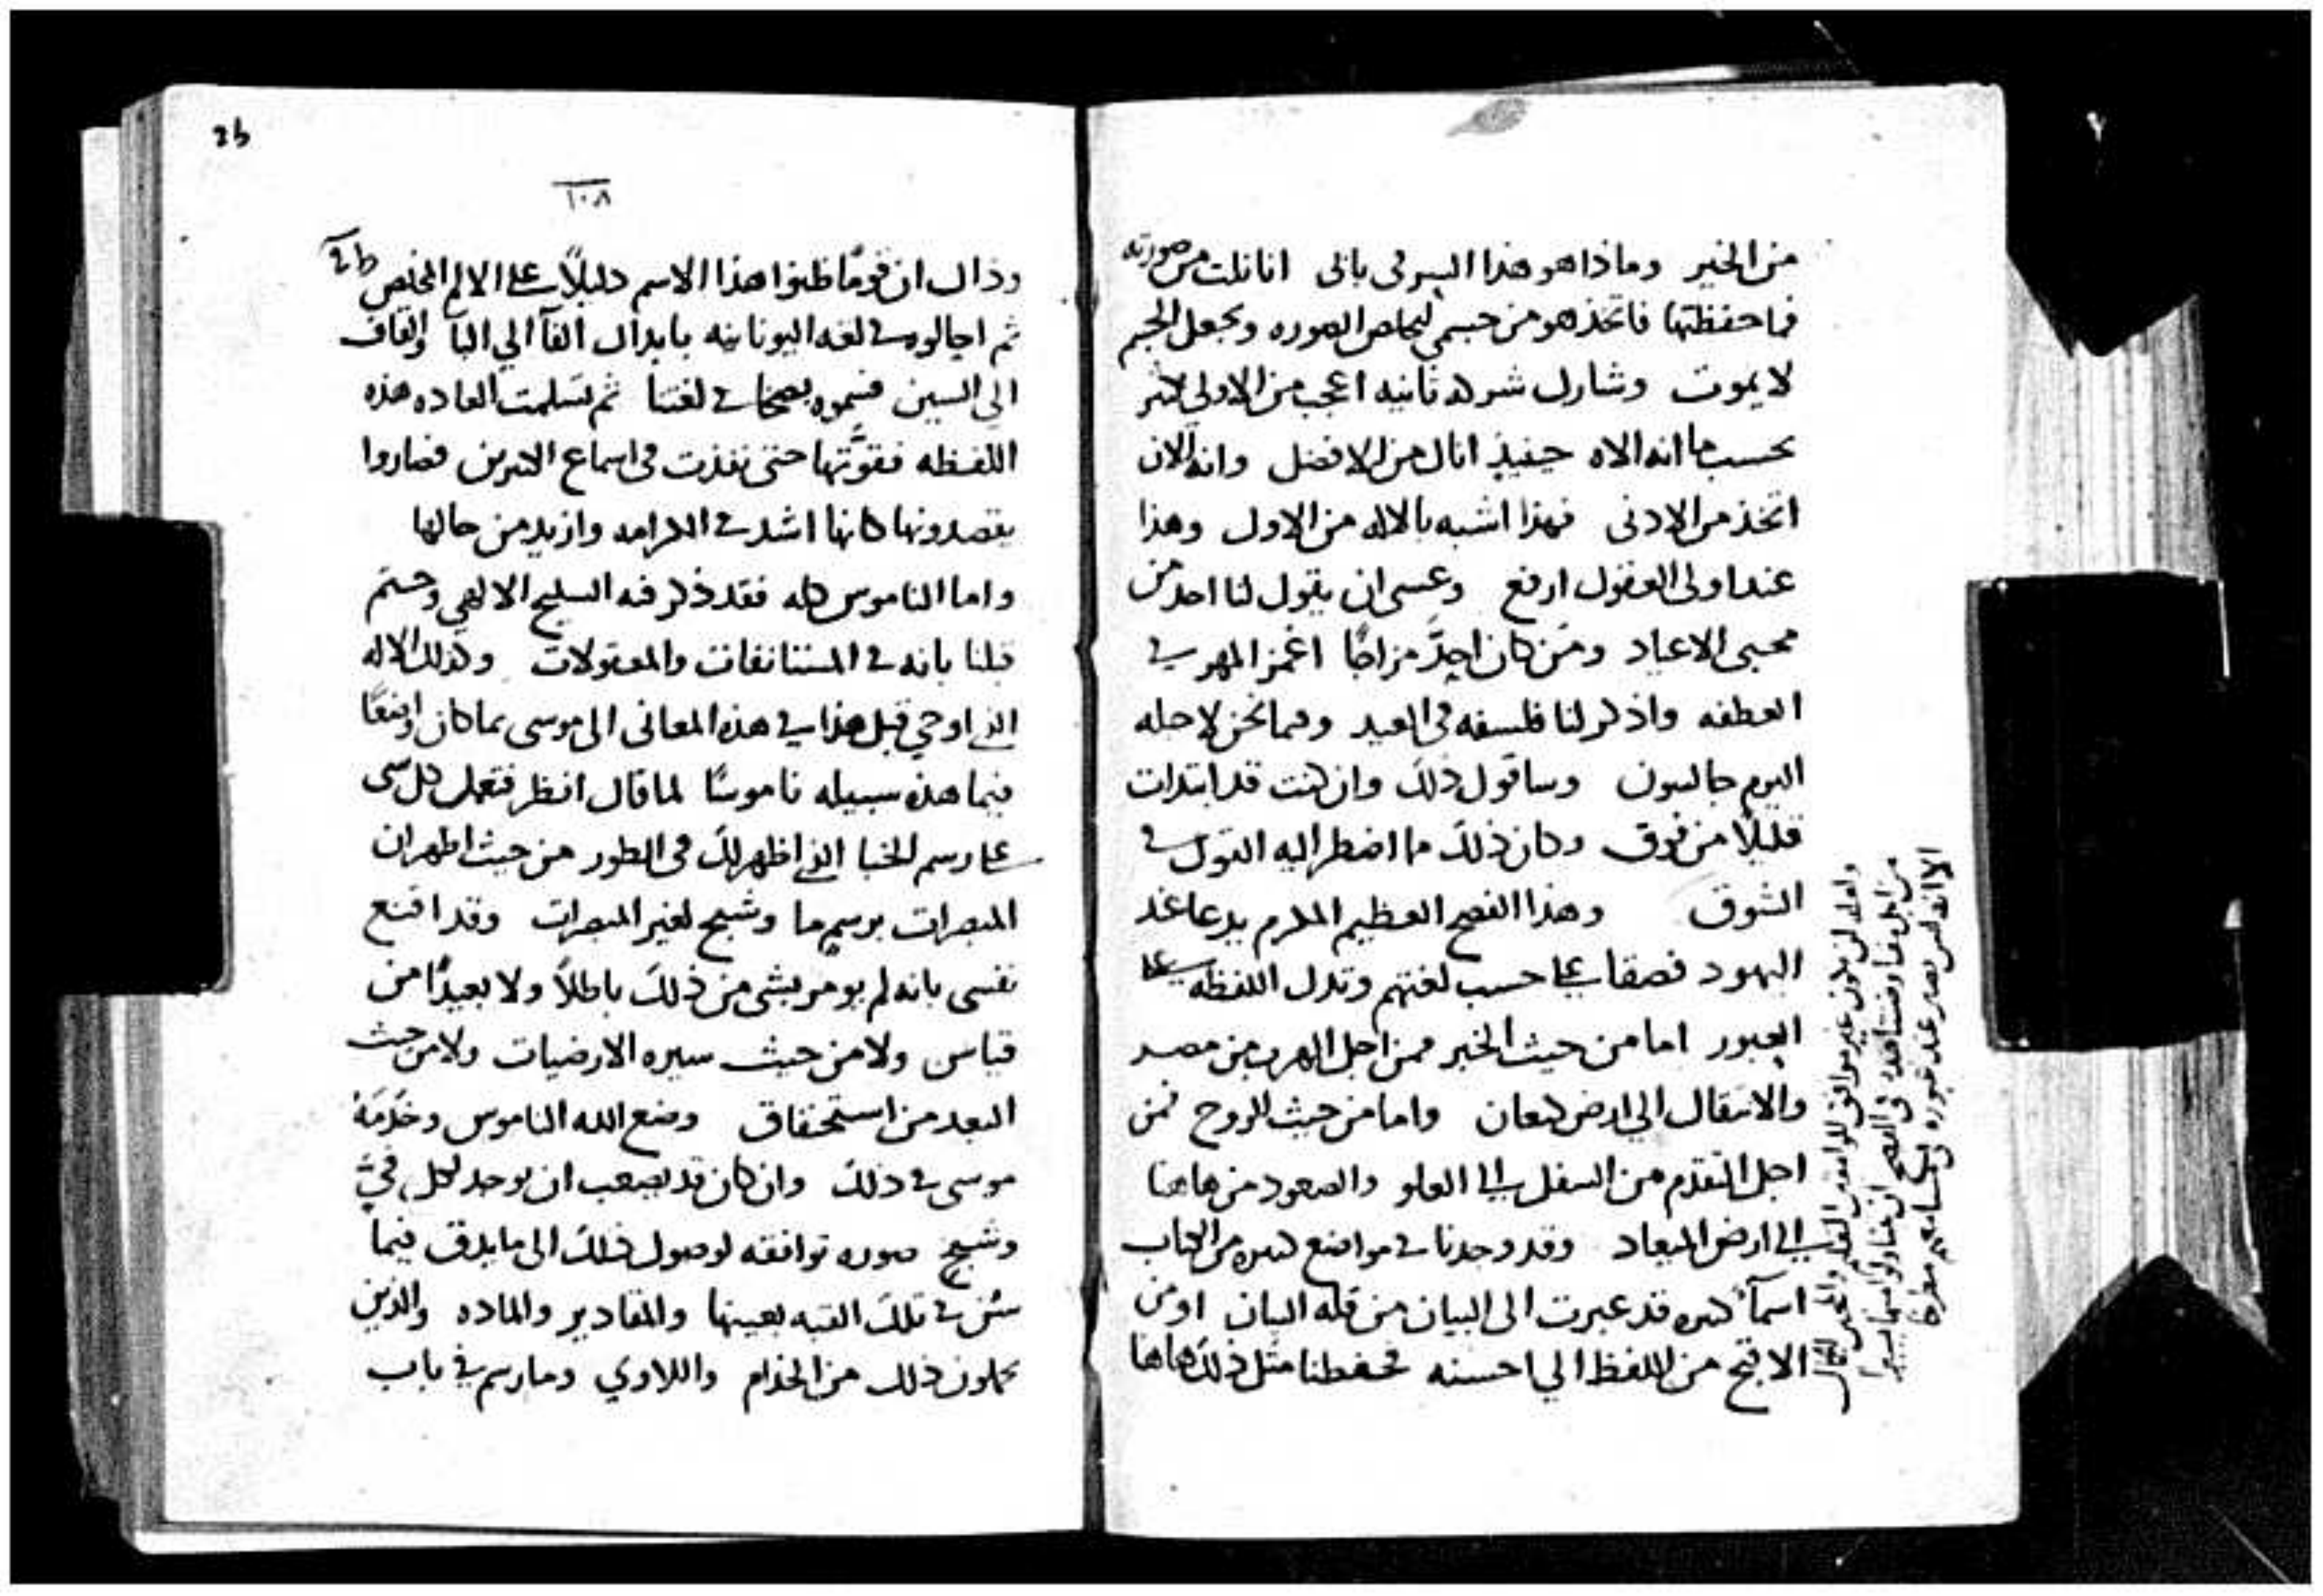 من الخير وماذا هو هذا السر في باني انا نلت من صورته
فما حفظتها فاتخذ هو من جسمي ليخلص الصوره ويجعل الجسم
لا يموت وشارك شركه ثانيه اعجب من الاولي كثير
بحسب ما انه الاه حينيذ انال من الافضل وانه الان
اتخذ من الادنى فهذا اشبه بالاله من الاول وهذا
عند اولى العقول ارفع وعسى ان يقول لنا احد من
محبى الاعياد ومن كان احد مزاجًا اغمز المهر في
العطفه واذكر لنا فلسفه في العيد وفيما نحن لاجله
اليوم جالسون وساقول ذلك وان كنت قد ابتدات
قليلًا من فوق وكان ذلك ما اضطر اليه القول في
الشوق وهذا الفصح العظيم المكرم يدعا عند
اليهود فصقا على حسب لغتهم وتدل اللفظه على
العبور اما من حيث الخبر فمن اجل الهرب من مصر
والانتقال الي ارض كنعان واما من حيث الروح فمن
اجل التقدم من السفل الى العلو والصعود من هاهنا
الى ارض الميعاد وقد وجدنا في مواضع كثيره من الكتاب
اسمآ كثيره قد عبرت الى البيان من قله البيان او من
الاقبح من اللفظ الي احسنه فحفظنا مثل ذلك هاهنا
26
١٠٨
وذاك ان قومًا ظنوا هذا الاسم دليلًا على الالم المخلص
ثم احالوه في لغه اليونانيه بابدال الفآ الي البآ والقاف
الى السين فسموه بصخا في لغتنا ثم تسلمت العاده هذه
اللفظه فقوتها حتى نفذت في اسماع الكثرين فصاروا
يقصدونها كانها اشد في الكرامه وازيد من حالها
واما الناموس كله فقد ذكر فيه السليح الالهي وحتم
قبلنا بانه في المستانفات والمعقولات وكذلك الاله
الذي اوحي قبل هذا في هذه المعانى الى موسى بما كان واضعًا
فيما هذه سبيله ناموسًا لما قال انظر فتعمل كل شى
على رسم الخبا الذي اظهر لك في الطور من حيث اظهر ان
المبصرات برسم ما وشبح لغير المبصرات وقد اقنع
نفسى بانه لم يومر بشى من ذلك باطلًا ولا بعيدًا من
قياس ولا من حيث سيره الارضيات ولا من حيث
البعد من استحقاق وضع الله الناموس وخدمة
موسى في ذلك وان كان قد يصعب ان يوجد لكل في
وشبح صوره توافقه لوصول ذلك الى ما يدق فيما
سن في تلك القبه بعينها والمقادير والماده والذين
يحملون ذلك من الخدام واللاوي وما رسم في باب